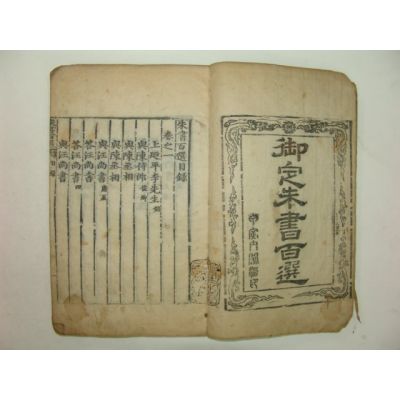 御定朱書百選
朱書百選目錄
卷之一
上延平李先生
與陳侍郎
與陳丞相
與陳丞相
與汪尚書
答汪尚書
與汪尚書